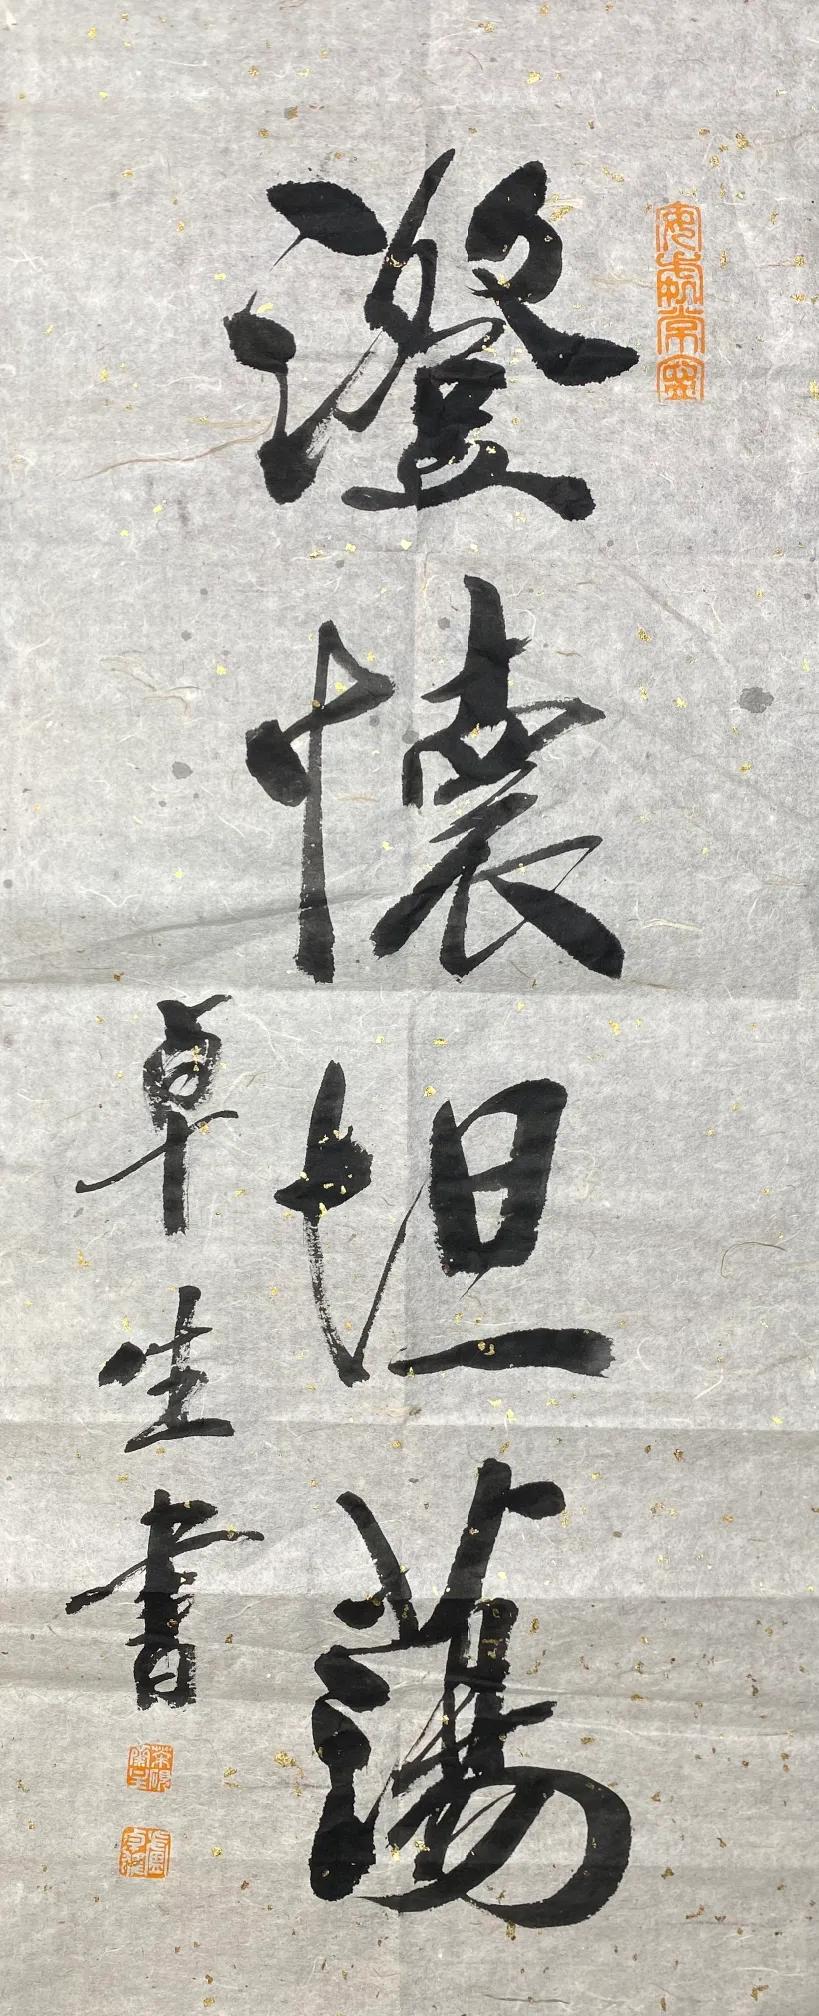 澄懷坦蕩
卓生書